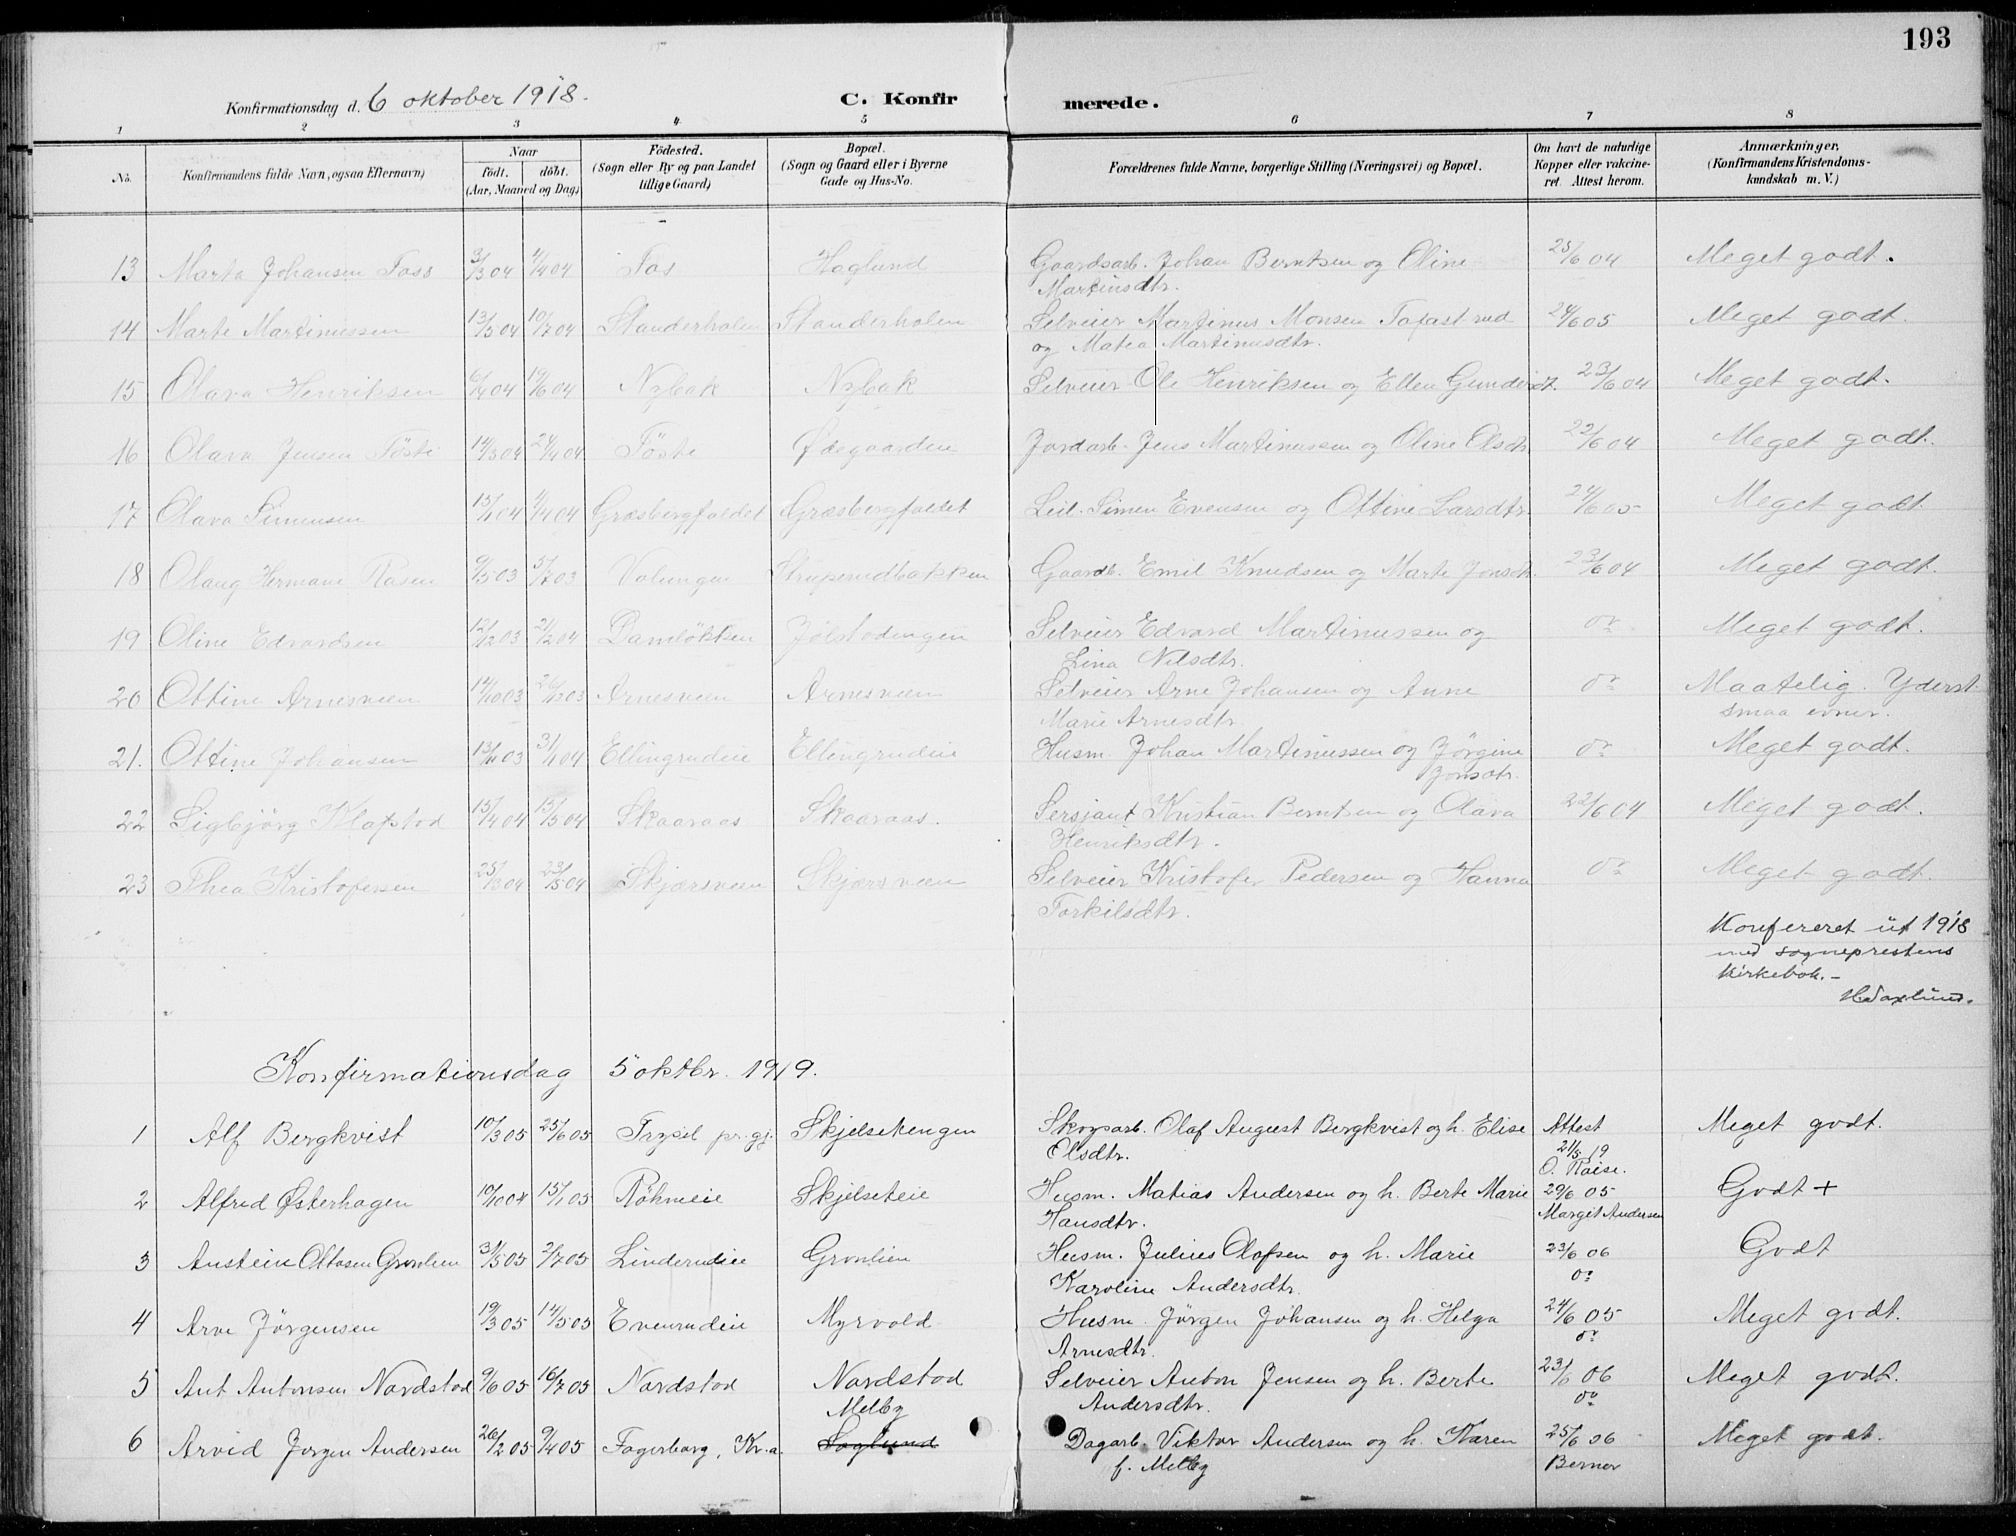 193
Konfirmationsdag d. 6 oktober 1918.
C. Konfirmerede.
1 2 3 4 5 6 7 8
No.
Konfirmandens fulde Navn, ogsaa Efternavn)
Naar
født. døbt.
(Aar, Maaned og Dag)
Fødested.
(Sogn eller By og paa Landet
tillige Gaard)
Bopæl.
(Sogn og Gaard eller i Byerne
Gade og Hus-No.
Forældrenes fulde Navne, borgerlige Stilling (Næringsvei) og Bopæl.
Om havt de naturlige
Kopper eller vakcine-
ret Attest herom.
Anmærkninger,
(Konfirmandens Kristendoms-
kundskab m. V.)
13 Marta Johansen Foss 3/3 04 4/4 04 Fos Haglund Gaardsarb. Johan Berntsen og Oline 25/6 04 Meget godt.
Martinsdtr.
14 Marte Martinussen 13/5 04 10/7 04 Standerholen Standerholen Selveier Martinus Monsen Tofastrud 24/6 05 Meget godt.
og Matea Martinusdtr.
15 Olava Henriksen 6/4 04 19/6 04 Nybak Nybak Selveier Ole Henriksen og Ellen Gundersdt. 23/6 04 Meget godt.
16 Olava Jensen Föste 14/3 04 24/4 04 Föste Ødegaarden Jordarb. Jens Martinussen og Oline Olsdtr. 22/6 04 Meget godt.
17 Olava Simensen 15/1 04 4/4 04 Græsbergfaldet Græsbergfaldet Leil. Simen Evensen og Ottine Larsdtr. 24/6 05 Meget godt.
18 Olaug Hermane Rasen 9/5 03 5/7 03 Volungen Struperudbakken Gaardb. Emil Knudsen og Marte Jonsdtr. 23/6 04 Meget godt.
19 Oline Edvardsen 12/12 03 21/2 04 Damløkken Jølstadengen Selveier Edvard Martinussen og do Meget godt.
Lina Nilsdtr.
20 Ottine Arnesveen 14/10 03 26/12 03 Arnesveen Arnesveen Selveier Arne Johansen og Anne do Maatelig. Yderst
Marie Arnesdtr. smaa evner.
21. Ottine Johansen 13/11 03 3/1 04 Ellingrudeie Ellingrudeie Husm. Johan Martinussen og Jörgine do Meget godt.
Jonsdtr.
22 Sigbjörg Klafstad 15/4 04 15/5 04 Skaaraas Skaaraas. Sersjant Kristian Berntsen og Olava 22/6 04 Meget godt.
Henriksdtr.
23 Thea Kristofersen 25/3 04 23/5 04 Skjærsveen Skjærsveen Selveier Kristofer Pedersen og Hanna do Meget godt.
Torkilsdtr.
Konfereret ut 1918
med sogneprestens
kirkebok. -
Konfirmationsdag 5 oktbr. 1919.
1 Alf Bergkvist 10/3 05 25/6 05 Trysil pr.gj. Skjelsetengen Skogsarb. Olaf August Bergkvist og h. Elise Attest Meget godt.
Olsdtr. 21/5 19
O. Raise.
2 Alfred Østerhagen 10/10 04 15/1 05 Röhneeie Skjelseteie Husm. Matias Andersen og h. Berte Marie 29/6 05 Godt +
Hansdtr. Margit Andersen
3 Austein Ottosen Grønlien 31/5 05 2/7 05 Linderudeie Grønlien Husm. Julius Olafsen og h. Marie 23/6 06 Godt
Karoline Andersdtr. do
4 Arve Jörgensen 19/3 05 14/5 05 Evenrudeie Myrvold Husm. Jörgen Johansen og h. Helga 24/6 05 Meget godt.
Arnesdtr. do
5 Ant Antonsen Nordstod 9/6 05 16/7 05 Nordstod Nordstod Selveier Anton Jensen og h. Berte 23/6 06 Meget godt.
Andersdtr. do
Melby
6 Arvid Jørgen Andersen 26/2 05 9/4 05 Fagerborg, Kr.a. Soglund Dagarb. Viktor Andersen og h. Karen 25/6 06 Meget godt.
f. Melby Berner